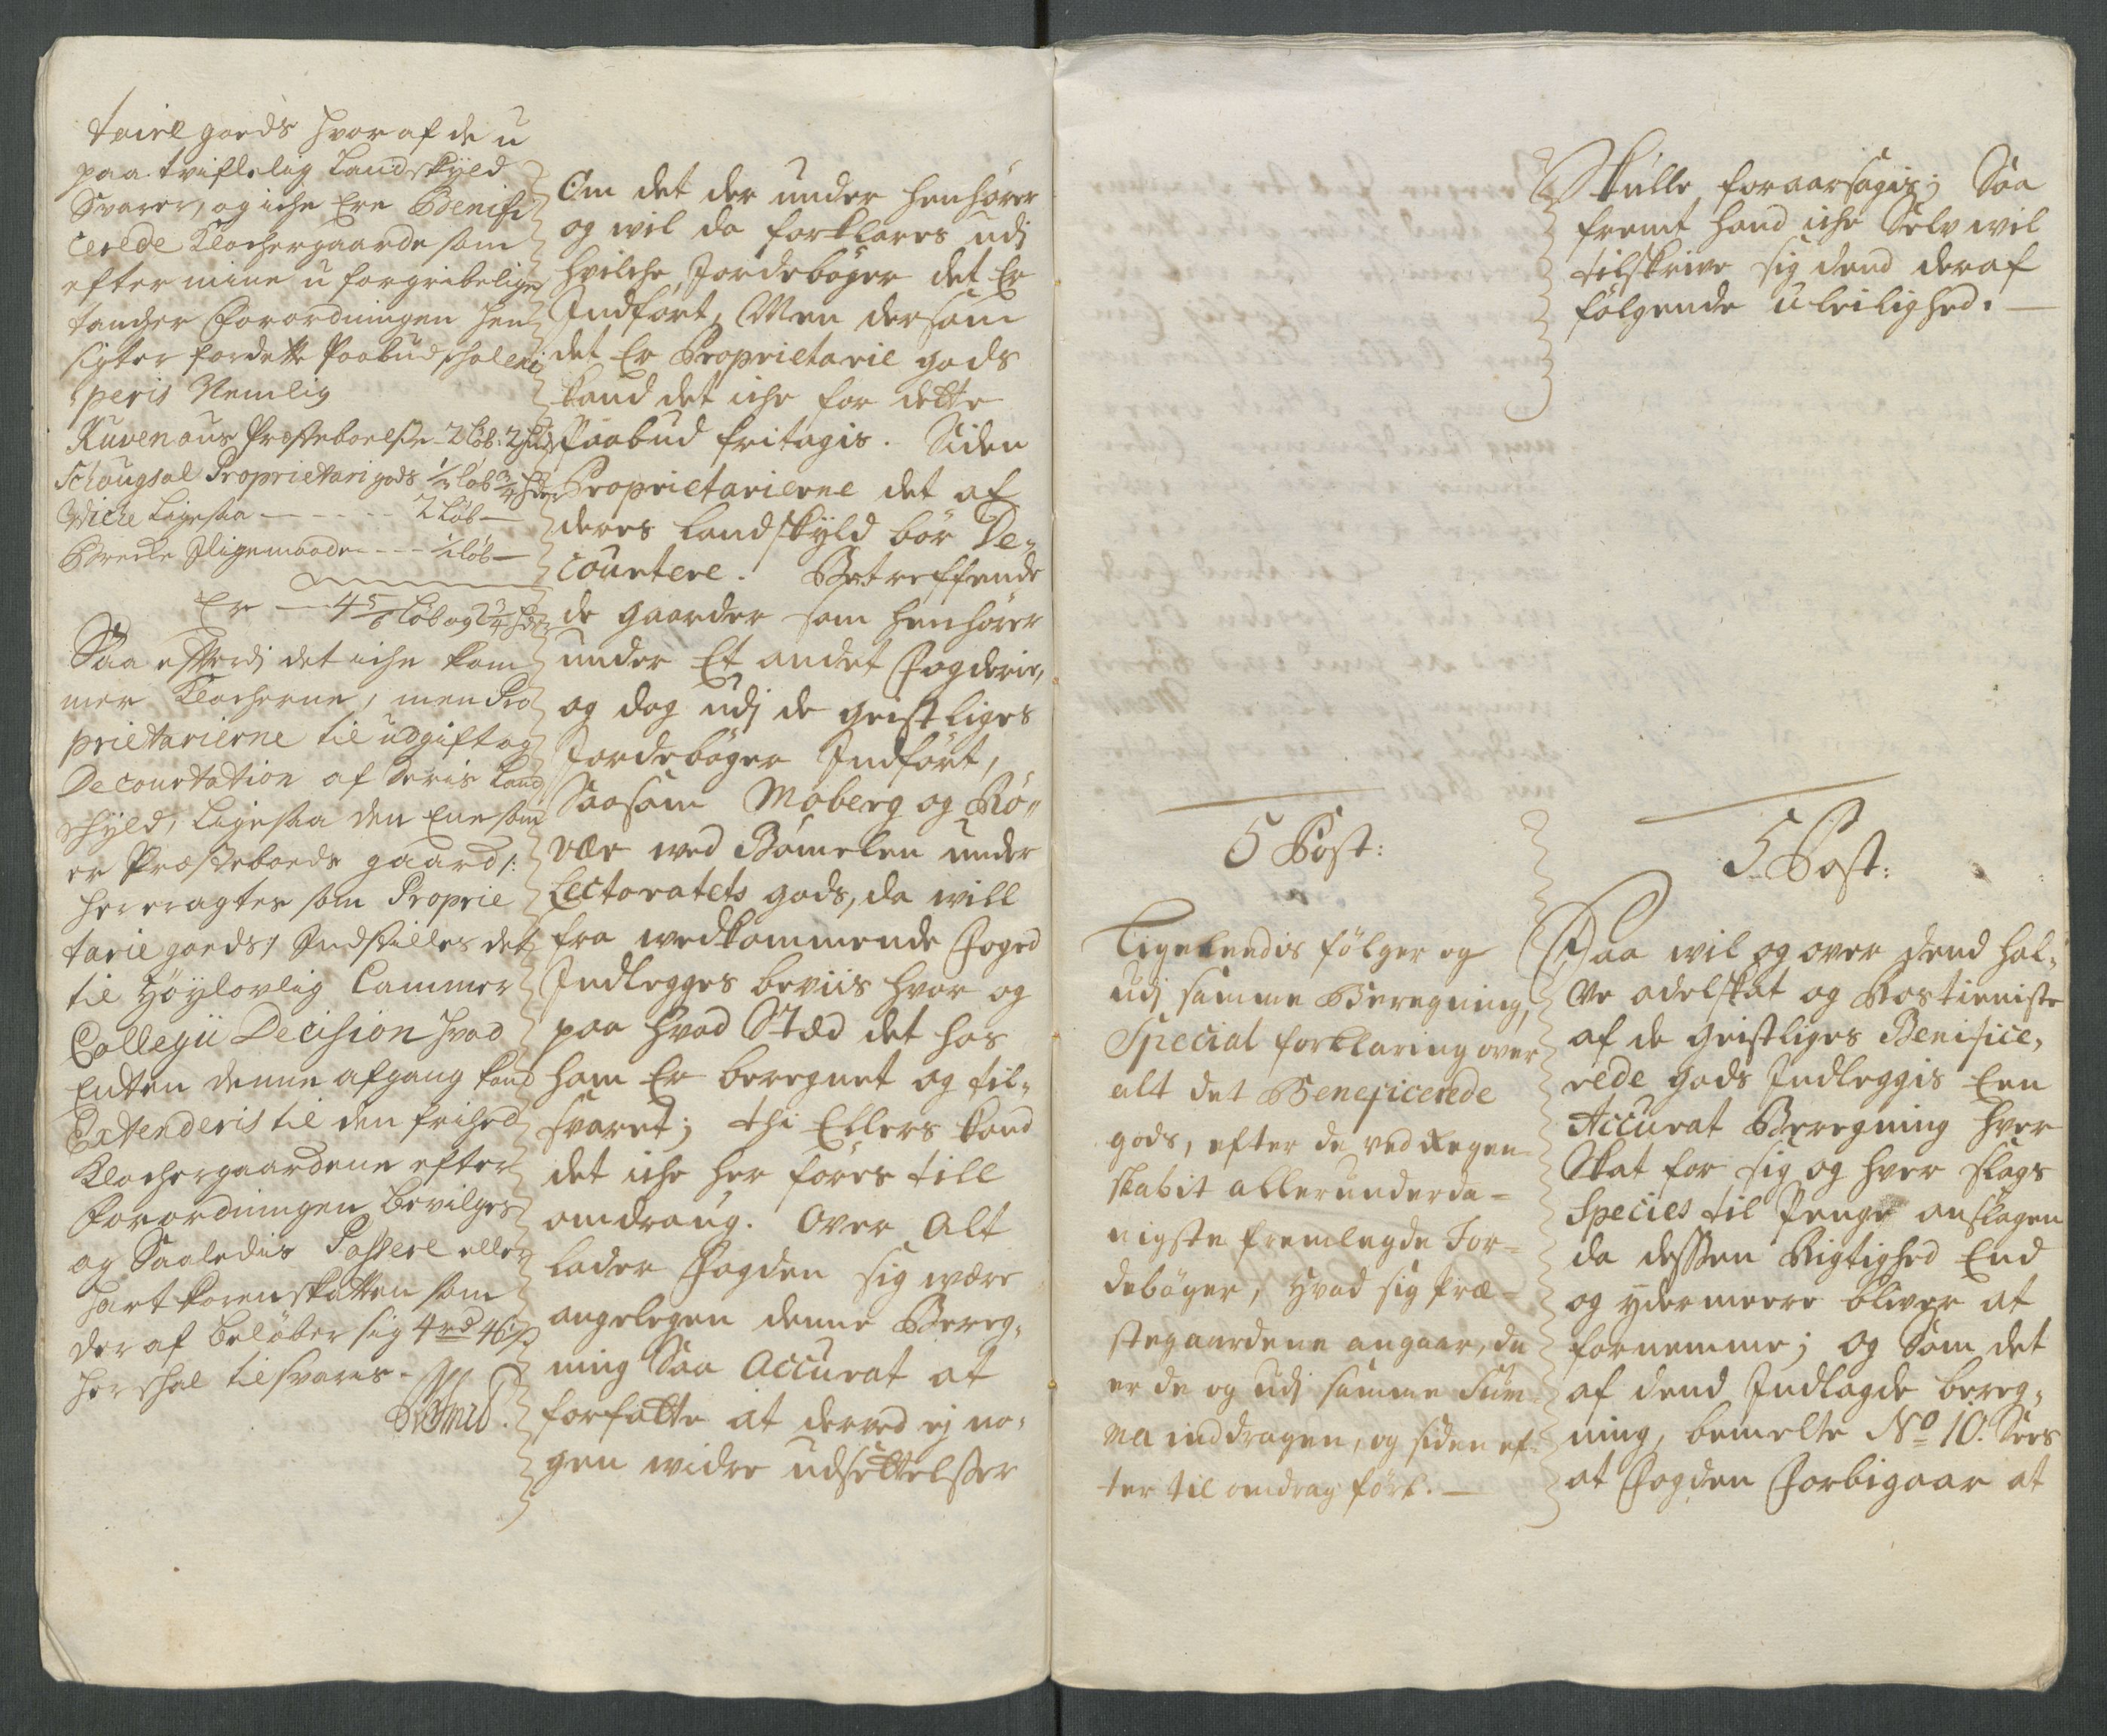 taire goeds hvor af de u
paa tviflelig Landskyld
Svarer, og iche Ere Benifi
cerede Klochergaarde som
efter mine u forgribelige
tancher Forordningen hen
sigter for dette Paabud skal ei
peris Nemlig
Kuvenaus Præsteboelse - 2 løb: 2 hud
Schougsal Proprietari gods 1/2 løb 3/4 hd
Wiche Ligesaa - - - - - 2 Løb -
Brecke Iligemaade - - - 1/2 løb -
Er - 4 5/6 Løb og 2 3/4 hd
Saa efterdj det iche kom
mer Klocherne, men Pro
prietarierne til udgift og
Decourtation af deris Land
skyld, Ligesaa den Ene som
er Præsteboeds gaard /:
her eragtes som Proprie
tarie goeds:/ Indstilles det
til Høylovlig Cammer
Collegii Decision hvad
Enten denne afgang kand
Extenderis til den frihed
Klochergaardene efter
Forordningen bevilges
og Saaledis Passere eller
hart kornskatten som
der af beløber sig 4 rd 46 s
her skal tilsvaris.

Om det der under henhører
og wil da forklares udj
hvilche Jordebøger det Er
Indført, Men dersom
det Er Proprietarie gods
kand det iche for dette
Paabud fritagis. Siden
Proprietarierne det af
deres landskyld bør De-
courtere. Betreffende
de gaarder som henhører
under Et andet Fogderie,
og dog udj de geistliges
Jordebøger Indført,
Saasom Moberg og Rø-
vær wed Bømelen under
Lectoratets gods, da will
fra wedkommende Foged
Indlegges beviis hvor og
paa hvad Stæd det hos
ham Er beregnet og til-
svaret; thi Ellers kand
det iche her føres till
omdraug. Over Alt
lader Fogden sig være
angelegen denne Bereg-
ning Saa Accurat at
forfatte at derved ej no-
gen widre udsettelsser

Skulle foraarsagis; Saa
fremt hand iche Selv wil
tilskrive sig dend deraf
følgende uleilighed. -

5 Post:
Ligeleedis følger og
udj samme Beregning,
Special forklaring over
alt det Beneficerede
gods, efter de ved Regen-
skabit allerunderda-
nigste fremlagde Jor-
debøger, Hvad sig præ-
stegaardene angaar, da
er de og udj samme Sum-
ma inddragen, og siden ef-
ter til omdrag ført. -

5 Post:
Paa wil og over dend hal-
ve adelskat og Rostieniste
af de geistliges Benifice-
rede gods Indleggis Een
Accurat Beregning hver
Skat for sig og hver slags
Species til Penge anslagen
da dessen Rigtighed End
og ydermeere bliver at
fornemme; og Som det
af dend Indlagde bereg-
ning, bemelte No 10. Sees
at Fogden Forbigaar at